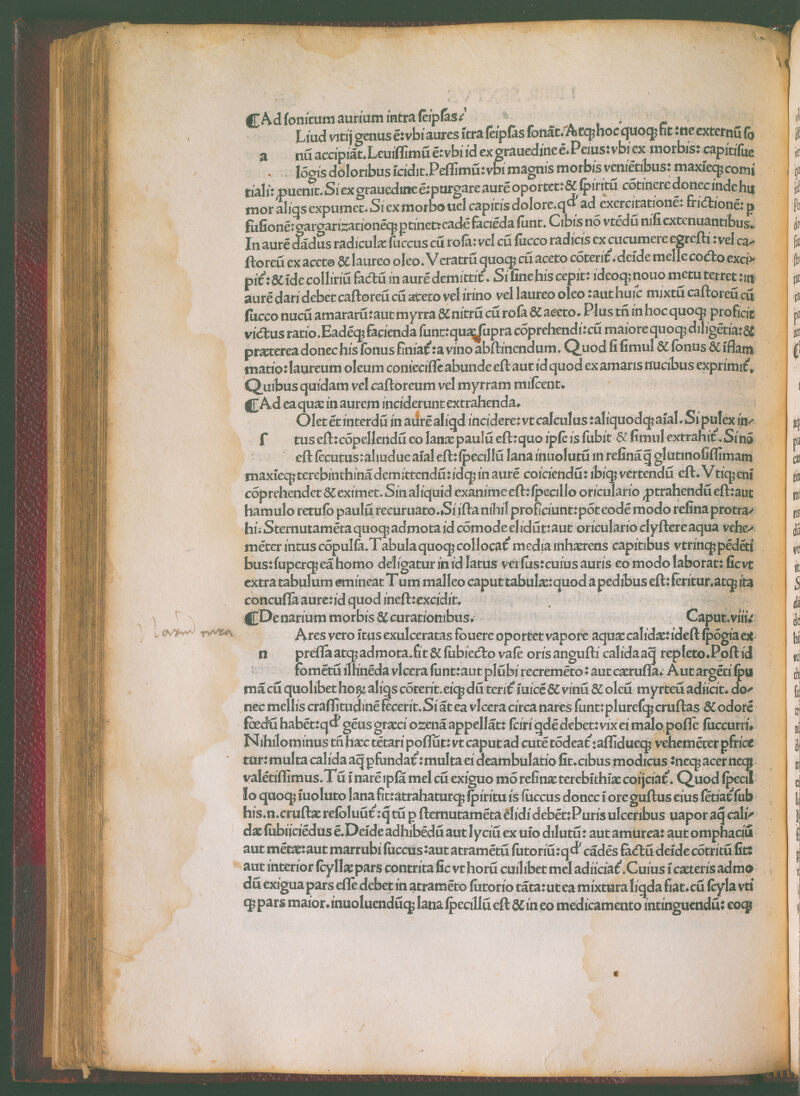 ¶Ad sonitum aurium intra seipsas.
Liud vitij genus ē:vbi aures ītra seipsas sonāt. Atqꝫ hoc quoqꝫ fit:ne externū so
a nū accipiāt. Leuissimū ē:vbi id ex grauedine ē. Peius:vbi ex morbis: capitisue
lōgis doloribus īcidit. Pessimū:vbi magnis morbis veniētibus: maxīeqꝫ comi
tiali: ꝓuenit. Si ex grauedine ē:purgare aurē oportet:& spiritū cōtinere donec inde hu
mor aliqs expumet. Si ex morbo uel capitis dolore.qđ ad exercitationē: frictionē: p
fusionē:gargarizationēqꝫ ptinet:eadē faciēda sunt. Cibis nō vtēdū nisi extenuantibus.
In aurē dādus radiculæ succus cū rosa:vel cū succo radicis ex cucumere egresti:vel ca-
storeū ex aceto & laureo oleo. Veratrū quoqꝫ cū aceto cōterit᷑.deīde melle cocto exci-
pit᷑:& īde colliriū factū in aurē demittit᷑. Si sine his cepit: ideoqꝫ nouo metu terret:in
aurē dari debet castoreū cū aceto vel irino vel laureo oleo:aut huic mixtū castoreū cū
succo nucū amararū:aut myrra & nitrū cū rosa & aecto. Plus tñ in hoc quoqꝫ proficit
victus ratio. Eadēqꝫ facienda sunt:quæ supra cōprehendi:cū maiore quoqꝫ diligētia:&
præterea donec his sonus finiat᷑:a vino abstinendum. Quod si simul & sonus & īflam
matio:laureum oleum coniecisse abunde est aut id quod ex amaris nucibus exprimit᷑.
Quibus quidam vel castoreum vel myrram miscent.
¶Ad ea quæ in aurem inciderunt extrahenda.
Olet ēt interdū in aurē aliqd incidere:vt calculus:aliquodqꝫ aīal. Si pulex in-
s tus est:cōpellendū eo lanæ paulū est:quo ipse is subit & simul extrahit᷑. Si nō
est secutus:aliudue aīal est:specillū lana inuolutū in resinā q̄ glutinosissimam
maxīeqꝫ terebinthinā demittendū:idqꝫ in aurē coiciendū: ibiqꝫ vertendū est. Vtiqꝫ enī
cōprehendet & eximet. Sin aliquid exanime est:specillo oriculario ꝓtrahendū est:aut
hamulo retuso paulū recuruato. Si ista nihil proficiunt:pōt eodē modo resina protra-
hi. Sternutamēta quoqꝫ admota id cōmode elidūt:aut oriculario clystere aqua vehe-
mēter intus cōpulsa. Tabula quoqꝫ collocat᷑ media inhærens capitibus vtrinqꝫ pēdēti
bus:superqꝫ eā homo deligatur in id latus versus:cuius auris eo modo laborat: sic vt
extra tabulum emineat Tum malleo caput tabulæ:quod a pedibus est:feritur.atqꝫ ita
concussa aure:id quod inest:excidit.
¶De narium morbis & curationibus. Caput.viii.
Ares vero ītus exulceratas fouere oportet vapore aquæ calidæ:idest spōgia ex
n pressa atqꝫ admota.fit & subiecto vase oris angusti calida aq̄ repleto. Post id
fomētū illinēda vlcera sunt:aut plūbi recremēto: aut cærussa. Aut argēti spu
mā cū quolibet hoꝝ aliqs cōterit.eiqꝫ dū terit᷑ īuicē & vinū & oleū myrteū adiicit. do-
nec mellis crassitudinē fecerit. Si āt ea vlcera circa nares sunt:pluresqꝫ crustas & odorē
fœdū habēt:qđ gēus græci ozenā appellāt: sciri qdē debet:vix ei malo posse succurri.
Nihilominus tñ hæc tētari possūt:vt caput ad cutē tōdeat᷑:assidueqꝫ vehemēter pfrice
tur:multa calida aq̄ pfundat᷑:multa ei deambulatio sit.cibus modicus:neqꝫ acer neqꝫ
valētissimus. Tū ī narē ipsā mel cū exiguo mō resinæ terebīthīæ coijciat᷑. Quod specil
lo quoqꝫ īuoluto lana fit:atrahaturqꝫ spiritu is succus donec ī ore gustus eius sētiat᷑ sub
his.n.crustæ resoluūt᷑:q̄ tū p sternutamēta elidi debēt:Puris ulceribus uapor aq̄ cali-
dæ subiiciēdus ē. Deīde adhibēdū aut lyciū ex uīo dilutū: aut amurca: aut omphaciū
aut mētæ:aut marrubi succus:aut atramētū sutoriū:qđ cādēs factū deīde cōtritū sit:
aut interior scyllæ pars contrita sic vt horū cuilibet mel adiiciat᷑. Cuius ī cæteris admo
dū exigua pars esse debet in atramēto sutorio tāta:ut ea mixtura liqda fiat.cū scyla vti
qꝫ pars maior.inuoluendūqꝫ lana specillū est & in eo medicamento intinguendū: eoqꝫ